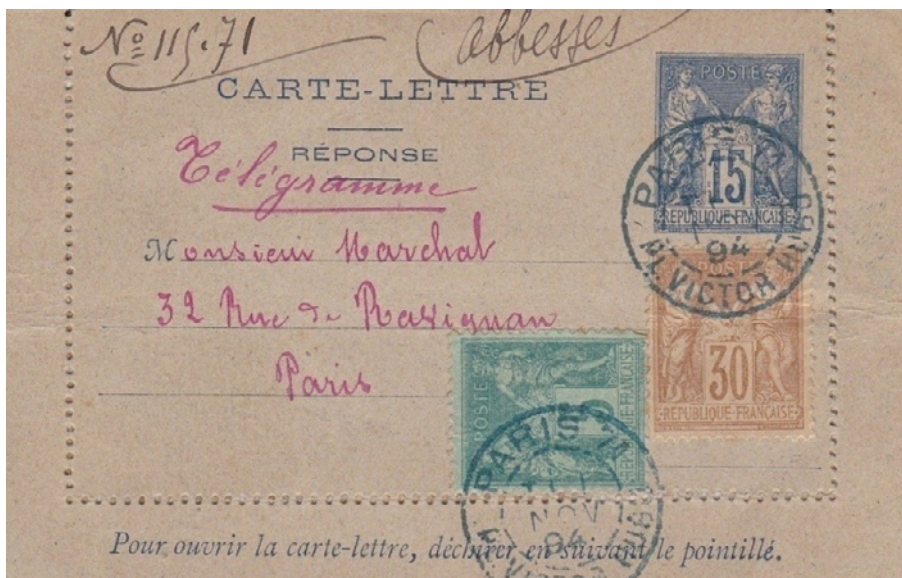 Nº 115.71
abbesses
CARTE-LETTRE
RÉPONSE
Télégramme
Monsieur Marchal
32 Rue de Ravignan
Paris
POSTE
15
REPUBLIQUE FRANÇAISE
PARIS 71
94
Pl. VICTOR HUGO
POSTE
30
REPUBLIQUE FRANÇAISE
POSTE
REPUBLIQUE FRANÇAISE
PARIS 71
NOV
94
Pour ouvrir la carte-lettre, déchirer en suivant le pointillé.